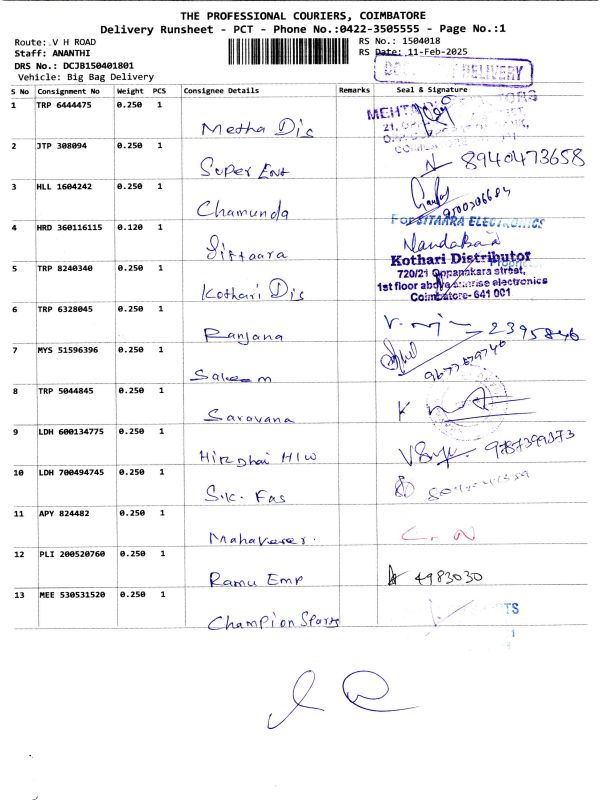 THE PROFESSIONAL COURIERS, COIMBATORE
Delivery Runsheet - PCT - Phone No.:0422-3505555 - Page No.:1
Route: V H ROAD RS No.: 1504018
Staff: ANANTHI RS Date: 11-Feb-2025
DRS No.: DCJB150401801
Vehicle: Big Bag Delivery DELIVERY
S No Consignment No Weight PCS Consignee Details Remarks Seal & Signature
1 TRP 6444475 0.250 1
Metha Dis
2 JTP 308094 0.250 1
Super Ent 8940473658
3 HLL 1604242 0.250 1
Chamunda
4 HRD 360116115 0.120 1 For SITAARA ELECTRONICS
Sittaara
5 TRP 8240340 0.250 1 Kothari Distributor
720/21 Oppanakara street,
Kothari Dis 1st floor above sunrise electronics
Coimbatore- 641 001
6 TRP 6328045 0.250 1
Ranjana 2395846
7 MYS 51596396 0.250 1
Saleem
8 TRP 5044845 0.250 1
Saravana
9 LDH 600134775 0.250 1
Hirdhai H/W 9787399373
10 LDH 700494745 0.250 1
S.K. Fas
11 APY 824482 0.250 1
Mahaveer.
12 PLI 200520760 0.250 1
Ramu Emp 4983030
13 MEE 530531520 0.250 1
Champion Sports